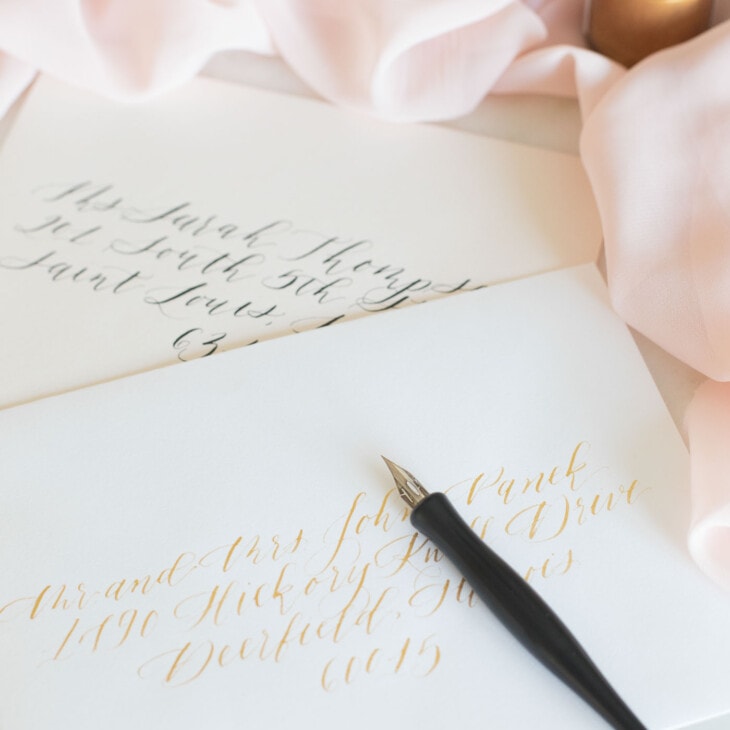 Ms Sarah Thomps
South 5th
Saint Louis,
63
Mr. and Mrs. John Panek
Hickory Knoll Drive
Deerfield, Illinois